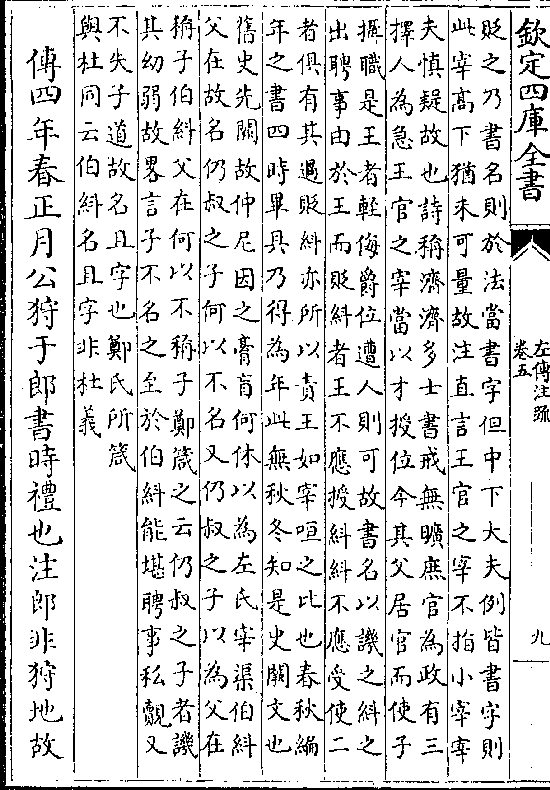 欽定四庫全書
左傳注疏
卷五
九
貶之乃書名則於法當書字但中下大夫例皆書字則
此宰高下猶未可量故注直言王官之宰不指小宰宰
夫慎疑故也詩稱濟濟多士書戒無曠庶官為政有三
擇人為急王官之宰當以才授位今其父居官而使子
攝職是王者輕侮爵位遭人則可故書名以譏之糾之
出聘事由於王而貶糾者王不應授糾糾不應受使二
者俱有其過貶糾亦所以責王如宰咺之比也春秋編
年之書四時畢具乃得為年此無秋冬知是史闕文也
舊史先闕故仲尼因之膏肓何休以為左氏宰渠伯糾
父在故名仍叔之子何以不名又仍叔之子以為父在
稱子伯糾父在何以不稱子鄭箴之云仍叔之子者譏
其幼弱故畧言子不名之至於伯糾能堪聘事私覿又
不失子道故名且字也鄭氏所箴
與杜同云伯糾名且字非杜義
傳四年春正月公狩于郎書時禮也注郎非狩地故